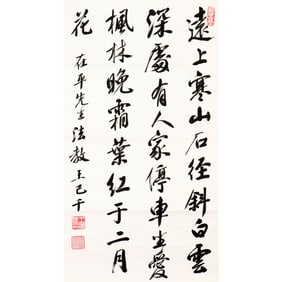 遠上寒山石径斜白雲
深處有人家停車坐愛
楓林晚霜葉紅于二月
花
在平先生法教 王己千